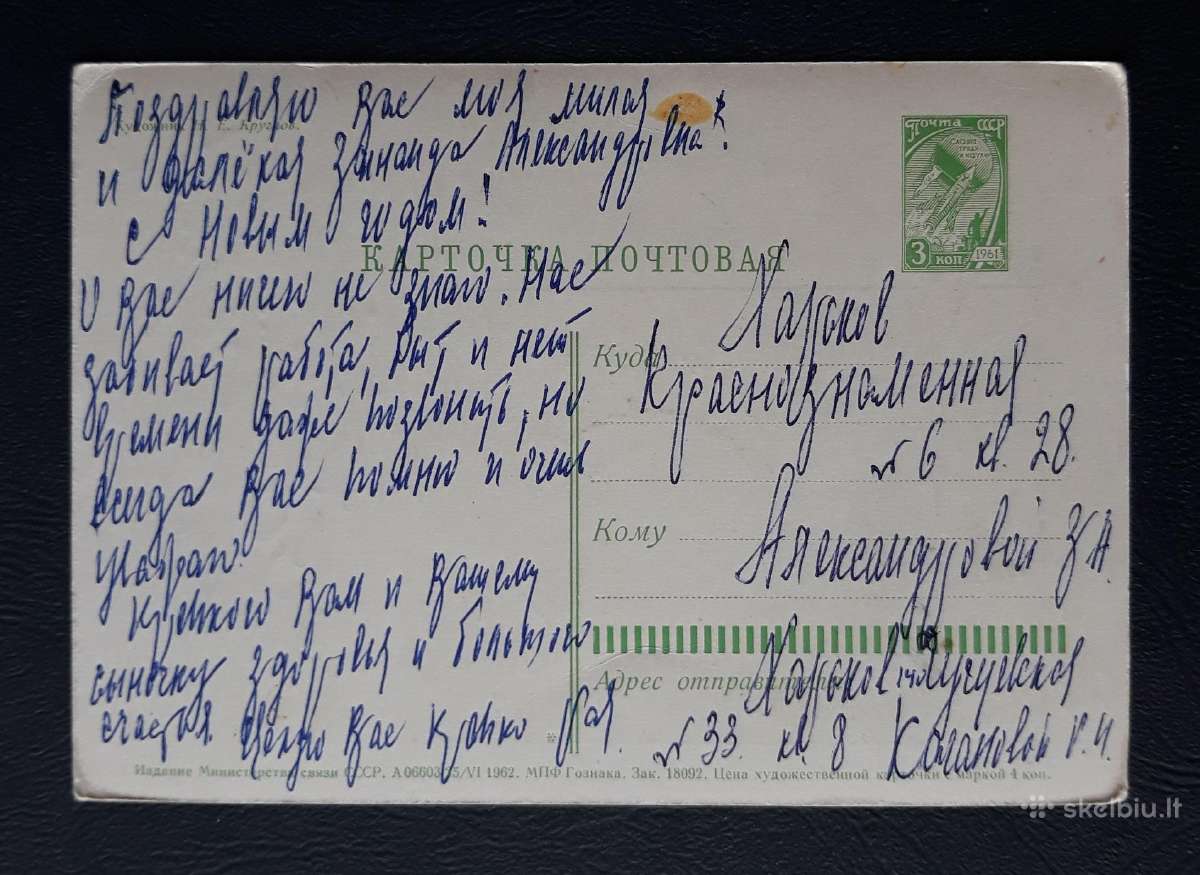 Поздравляю Вас моя милая
и далёкая Зинаида Александровна!
с Новым годом!
О Вас ничего не знаю. Нас
забивает работа, быт и нет
времени даже позвонить, но
всегда Вас помню и очень
уважаю.
Крепкого Вам и Вашему
сыночку здоровья и большого
счастья. Целую Вас крепко Рая.
Художник Л. Круглов.
ПОЧТА СССР
3 КОП
1961
КАРТОЧКА ПОЧТОВАЯ
Куда Харьков
Краснознаменная
№ 6 кв. 28.
Кому
Александровой З А.
Адрес отправителя
Харьков 14
№ 33. кв. 8 Кагановой Р. И.
Издание Министерства связи СССР. А06603 /VI 1962. МПФ Гознака. Зак. 18092. Цена художественной карточки с маркой 4 коп.
skelbiu.lt